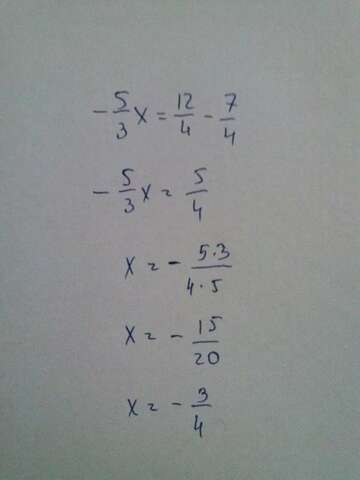 -5/3 x = 12/4 - 7/4
-5/3 x = 5/4
x = - 5·3/4·5
x = - 15/20
x = - 3/4